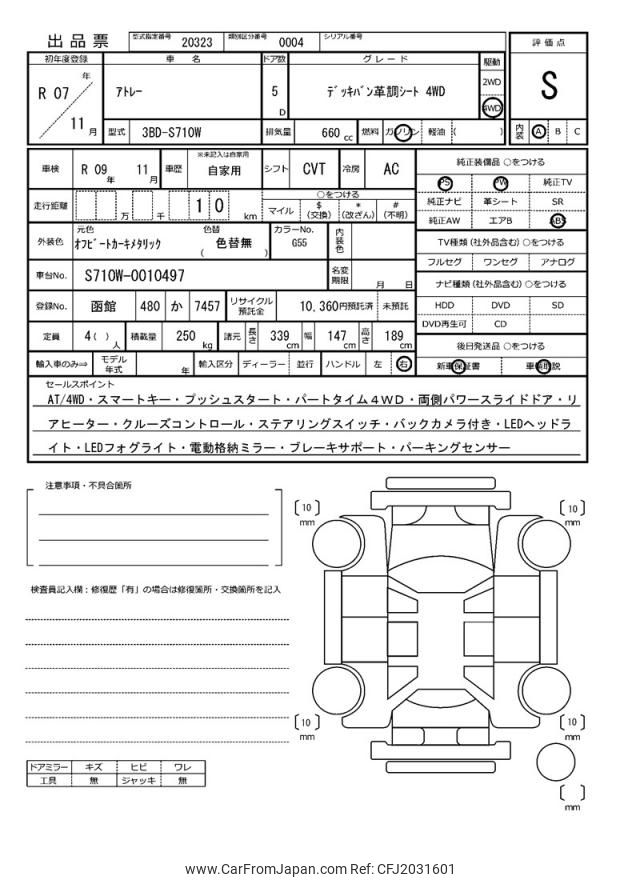 出品票 型式指定番号 20323 類別区分番号 0004 シリアル番号
初年度登録 車名 ドア数 グレード 駆動 評価点
R 07 年 11 月 アトレー 5 D デッキバン革調シート 4WD 2WD 4WD S
型式 3BD-S710W 排気量 660 cc 燃料 ガソリン 軽油 ( ) 内装 A B C
車検 R 09 年 11 月 車歴 ※未記入は自家用 自家用 シフト CVT 冷房 AC
純正装備品 ○をつける
PS PW 純正TV
純正ナビ 革シート SR
純正AW エアB ABS
走行距離 万 千 1 0 km ○をつける マイル $(交換) *(改ざん) #(不明)
外装色 元色 オフビートカーキメタリック 色替 色替無 ( ) カラーNo. G55 内装色
TV種類 (社外品含む) ○をつける
フルセグ ワンセグ アナログ
車台No. S710W-0010497 名変期限 月 日
ナビ種類 (社外品含む) ○をつける
HDD DVD SD
DVD再生可 CD
登録No. 函館 480 か 7457 リサイクル預託金 10,360円預託済 未預託
定員 4( ) 人 積載量 250 kg 諸元 長さ 339 cm 幅 147 cm 高さ 189 cm
後日発送品 ○をつける
新車保証書 車輌取説
輸入車のみ⇒ モデル年式 年 輸入区分 ディーラー 並行 ハンドル 左 右
セールスポイント
AT/4WD・スマートキー・プッシュスタート・パートタイム４ＷＤ・両側パワースライドドア・リ
アヒーター・クルーズコントロール・ステアリングスイッチ・バックカメラ付き・LEDヘッドラ
イト・LEDフォグライト・電動格納ミラー・ブレーキサポート・パーキングセンサー
注意事項・不具合箇所
検査員記入欄：修復歴「有」の場合は修復箇所・交換箇所を記入
[ 10 ] mm
[ 10 ] mm
[ 10 ] mm
[ 10 ] mm
[ ] mm
ドアミラー キズ ヒビ ワレ
工具 無 ジャッキ 無
www.CarFromJapan.com Ref: CFJ2031601